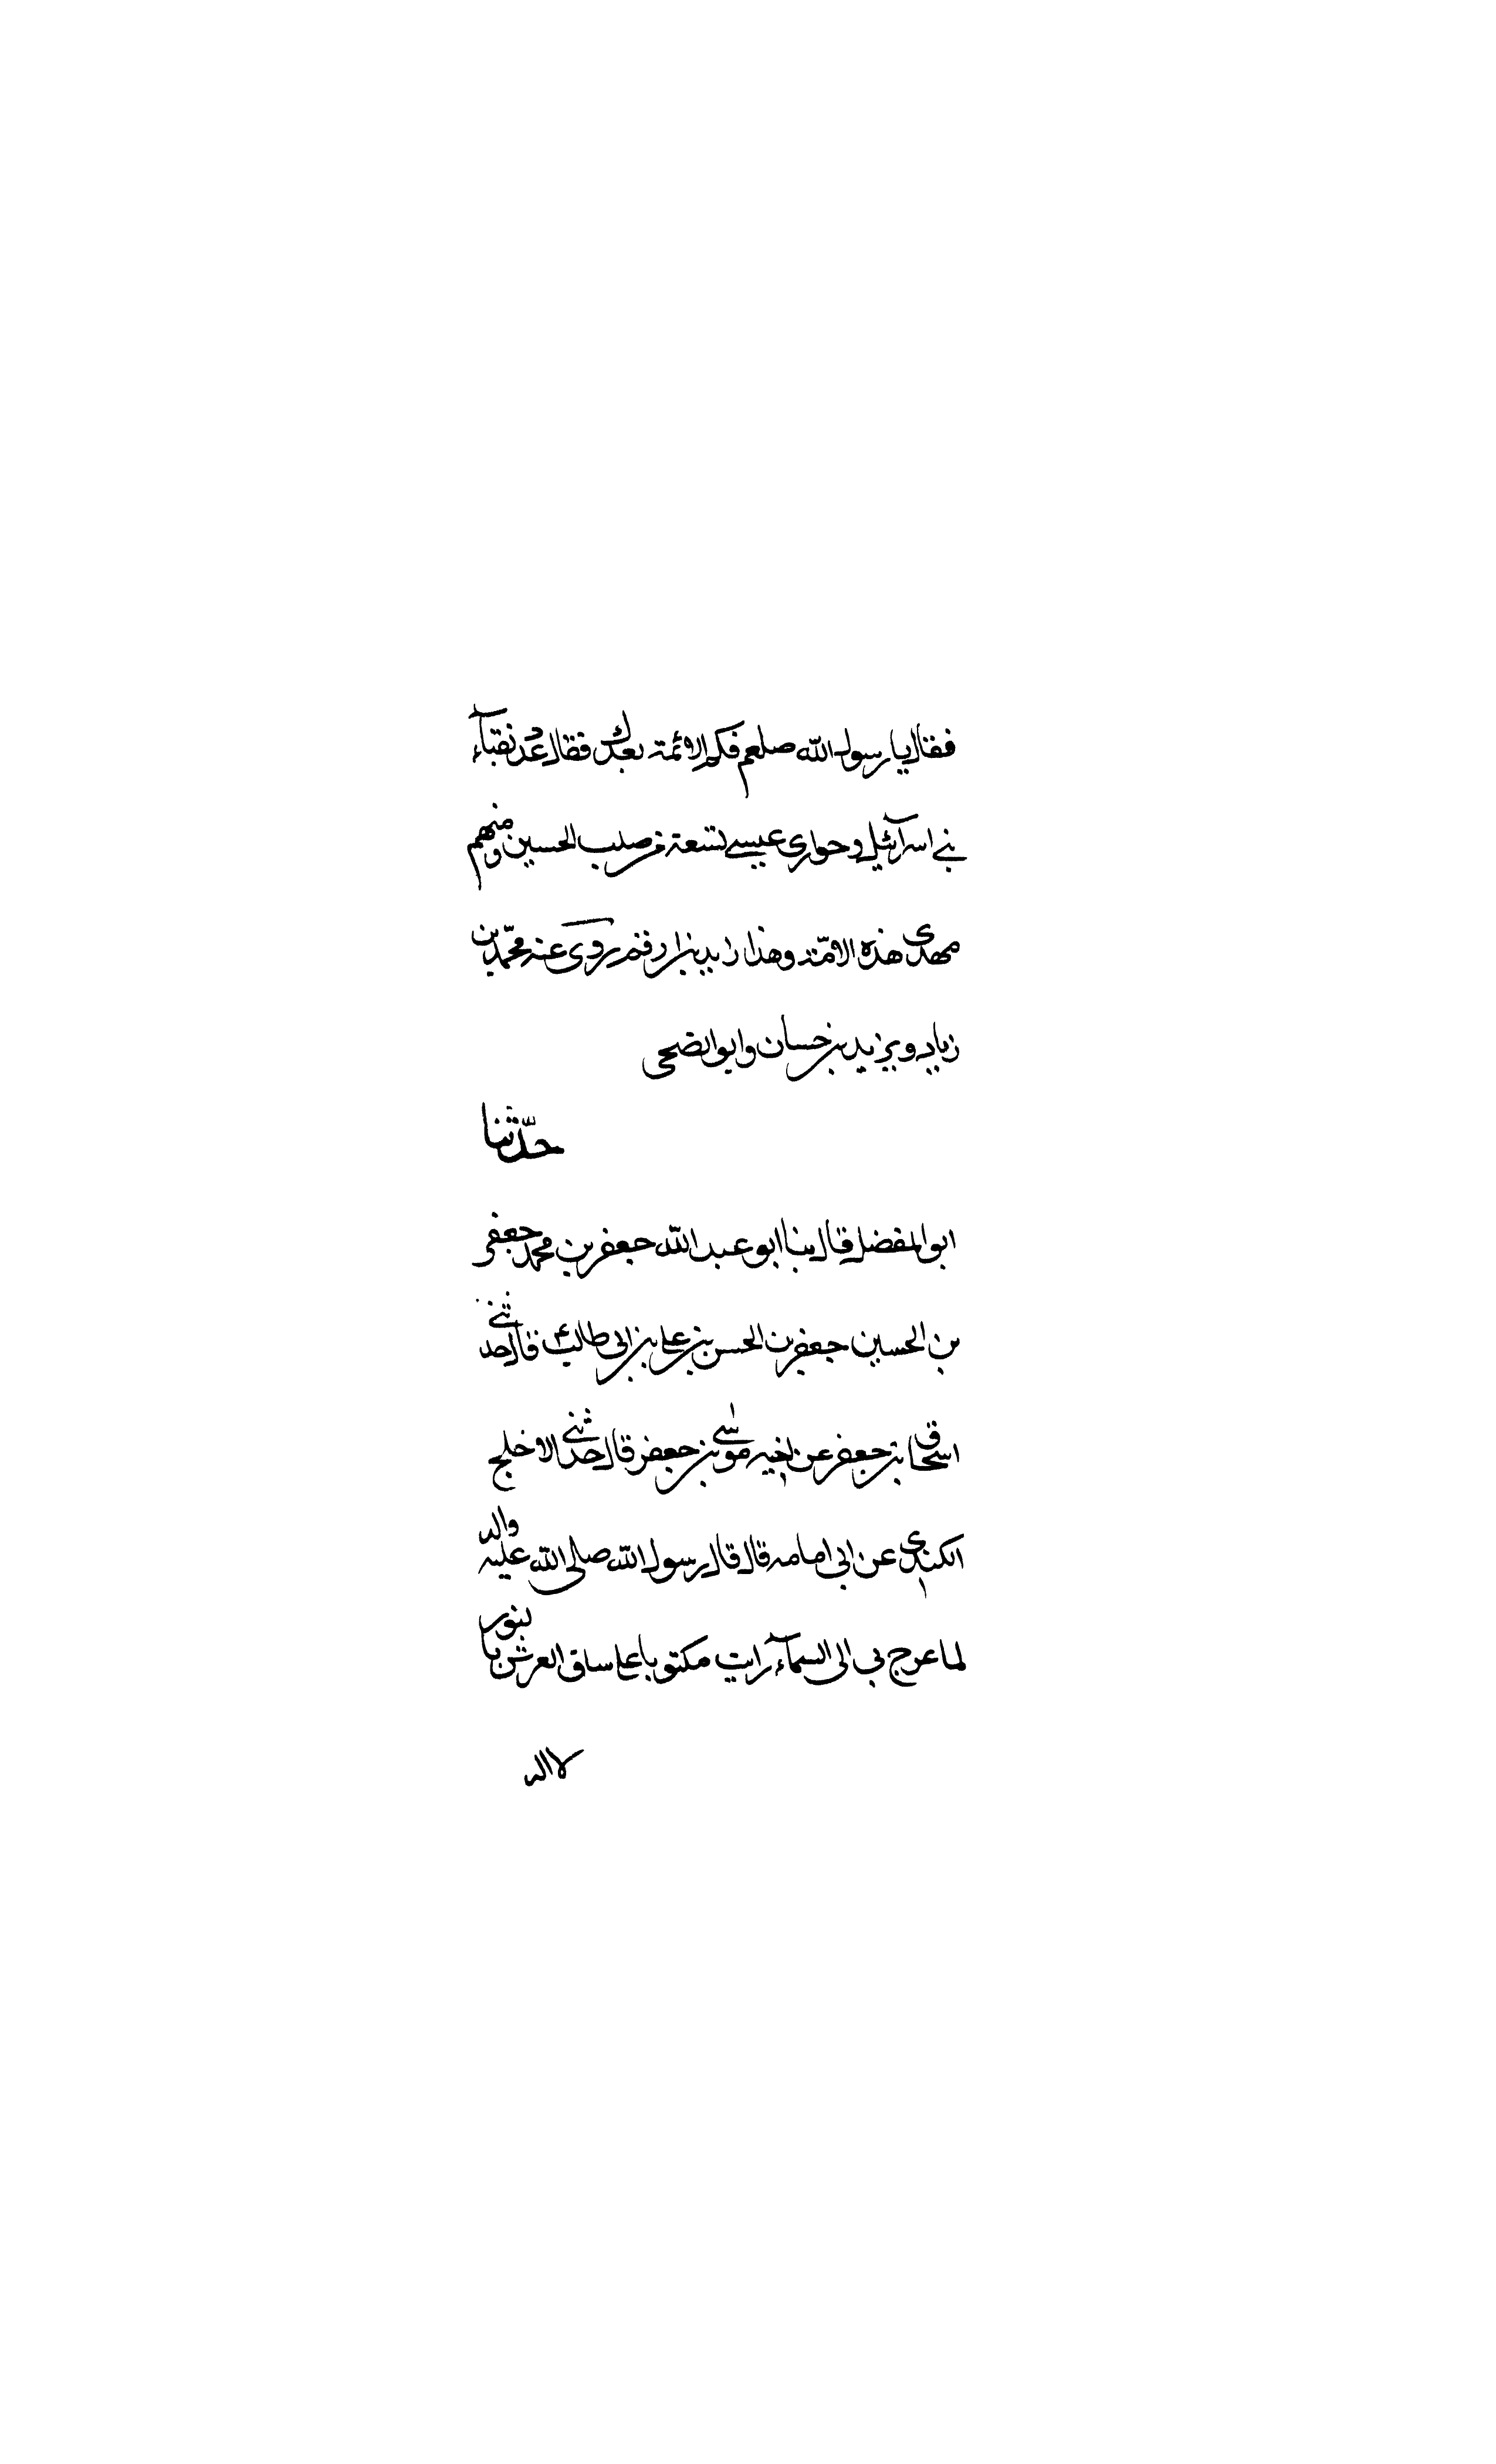 فقال يا رسول الله صلعم فكم الائمة بعدك فقال عدد نقباء
بنے اسرآئيل وحوارى عيسے تسعة من صلب الحسين ومنهم
مهدى هذه الامّة وهذا زيد بن ارقم روى عنه محمّد بن
زياد ويزيد بن حسان وابو الضحى
حدّثنا
ابو المفضل قال ثنا ابو عبد الله جعفر بن محمد جعفر
بن الحسين جعفر بن الحسن بن على بن ابى طالب ع قال حدثنے
اسحاق بن جعفر عن اخيه موسٰے بن جعفر قال حدثنے الاخلج
الكندى عن ابى امامه قال قال رسول الله صلى الله عليه واله
لما عرج بى الى السمآء رايت مكتوبا على ساق العرش بالنور
لا اله